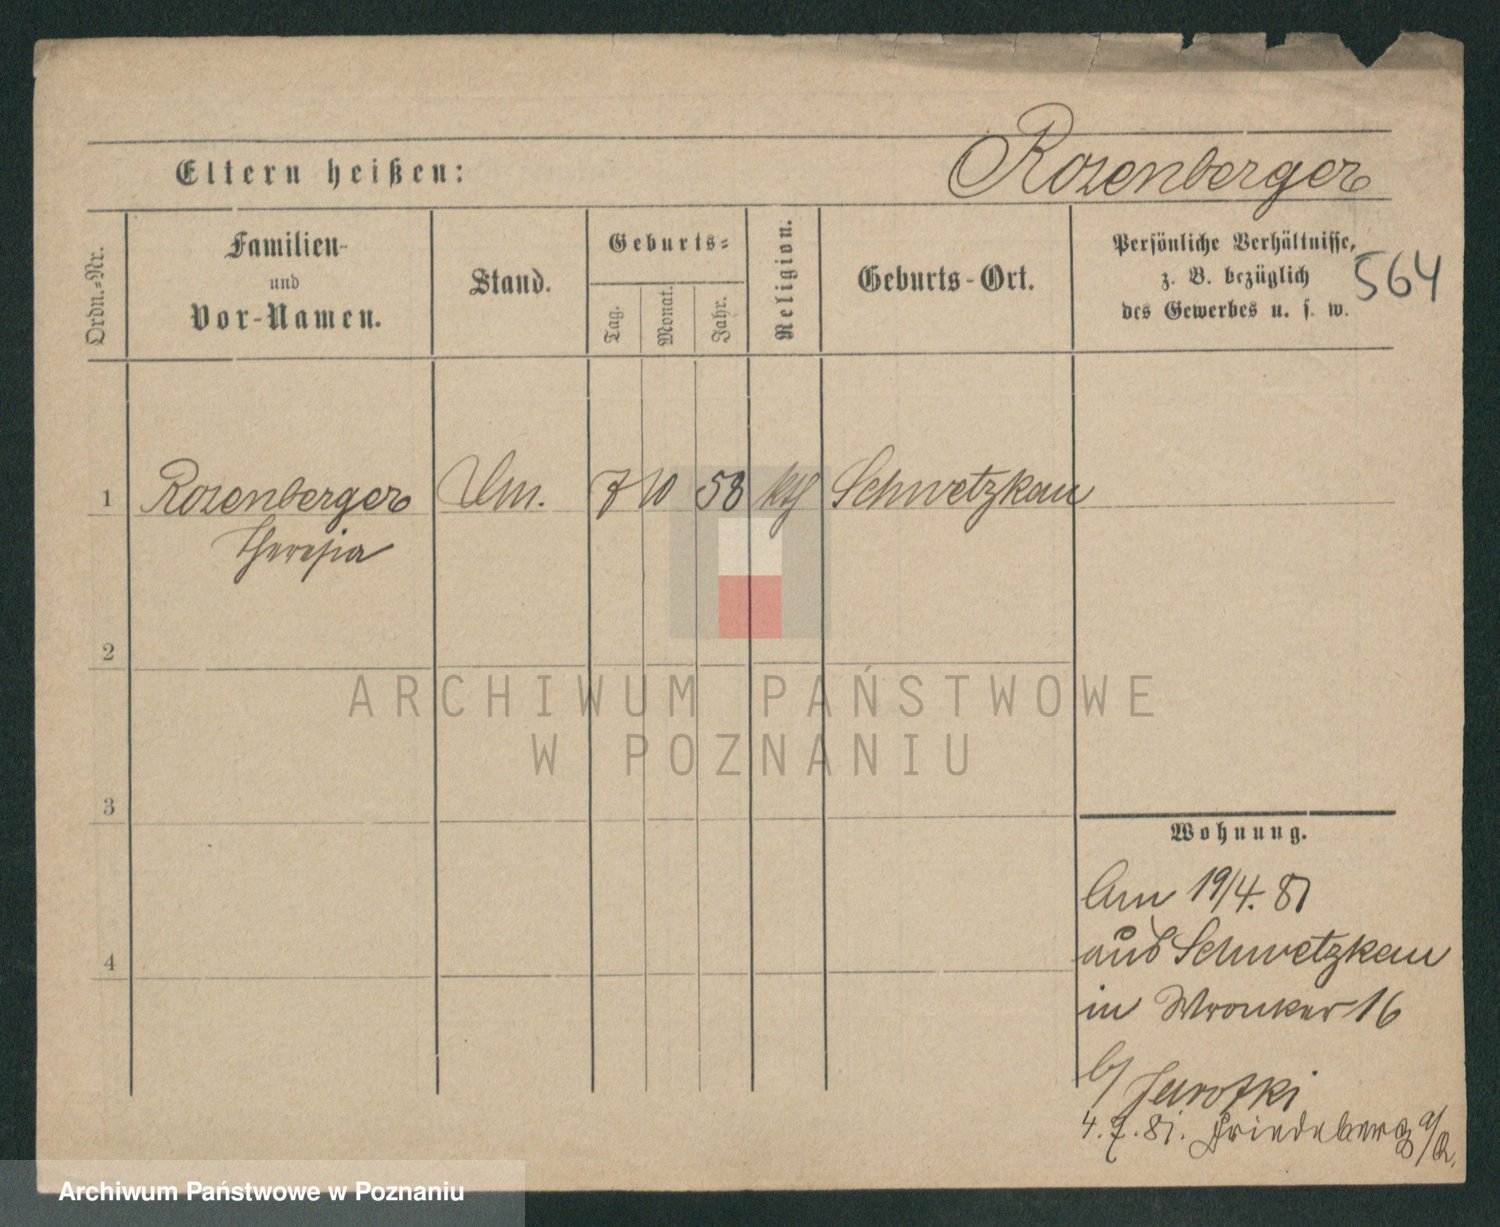 Eltern heißen:
Rozenberger
Ordn.-Nr.
Familien-
und
Vor-Namen.
Stand.
Geburts-
Tag.
Monat.
Jahr.
Religion.
Geburts-Ort.
Persönliche Verhältnisse,
z. B. bezüglich
des Gewerbes u. s. w.
564
1 Rozenberger 7 10 58 kth Schwetzkau
Theresia
2
3
4
ARCHIWUM PAŃSTWOWE
W POZNANIU
Wohnung.
Am 19/4. 81
aus Schwetzkau
in Wronker 16
b/
4. 7. 81. Friedeberg a/Q.
Archiwum Państwowe w Poznaniu